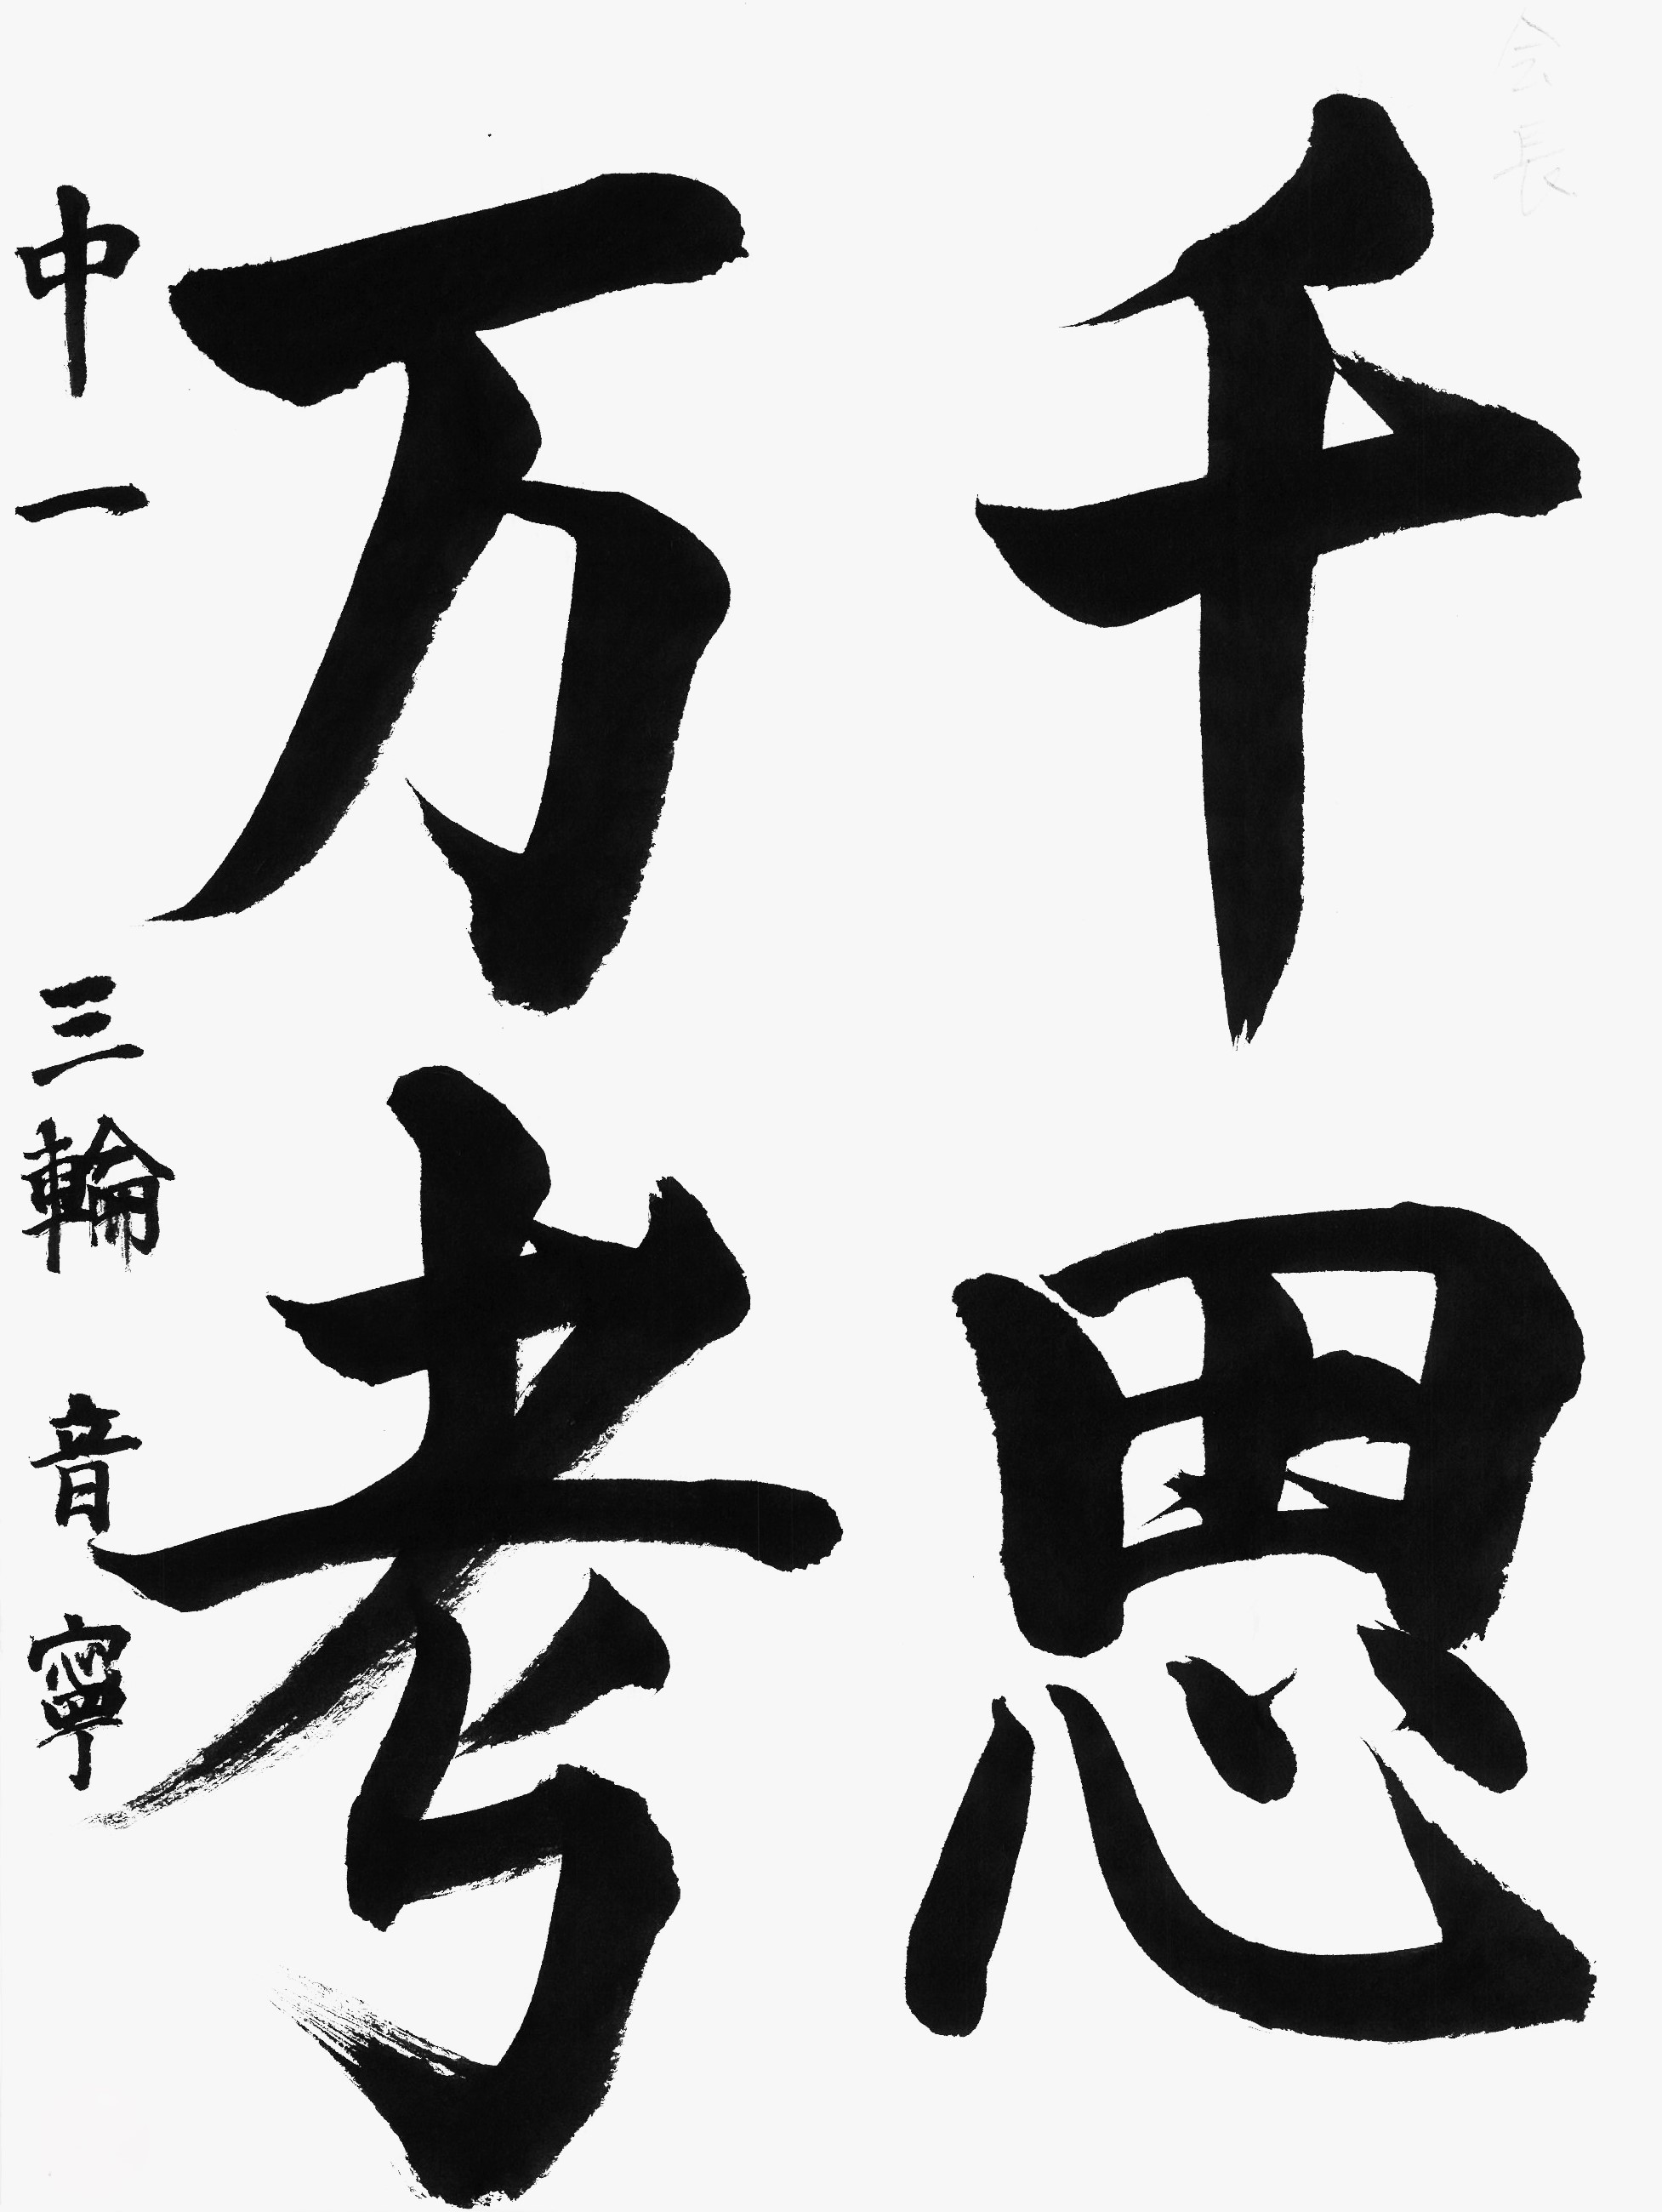 会長
千思
万考
中一 三輪音寧